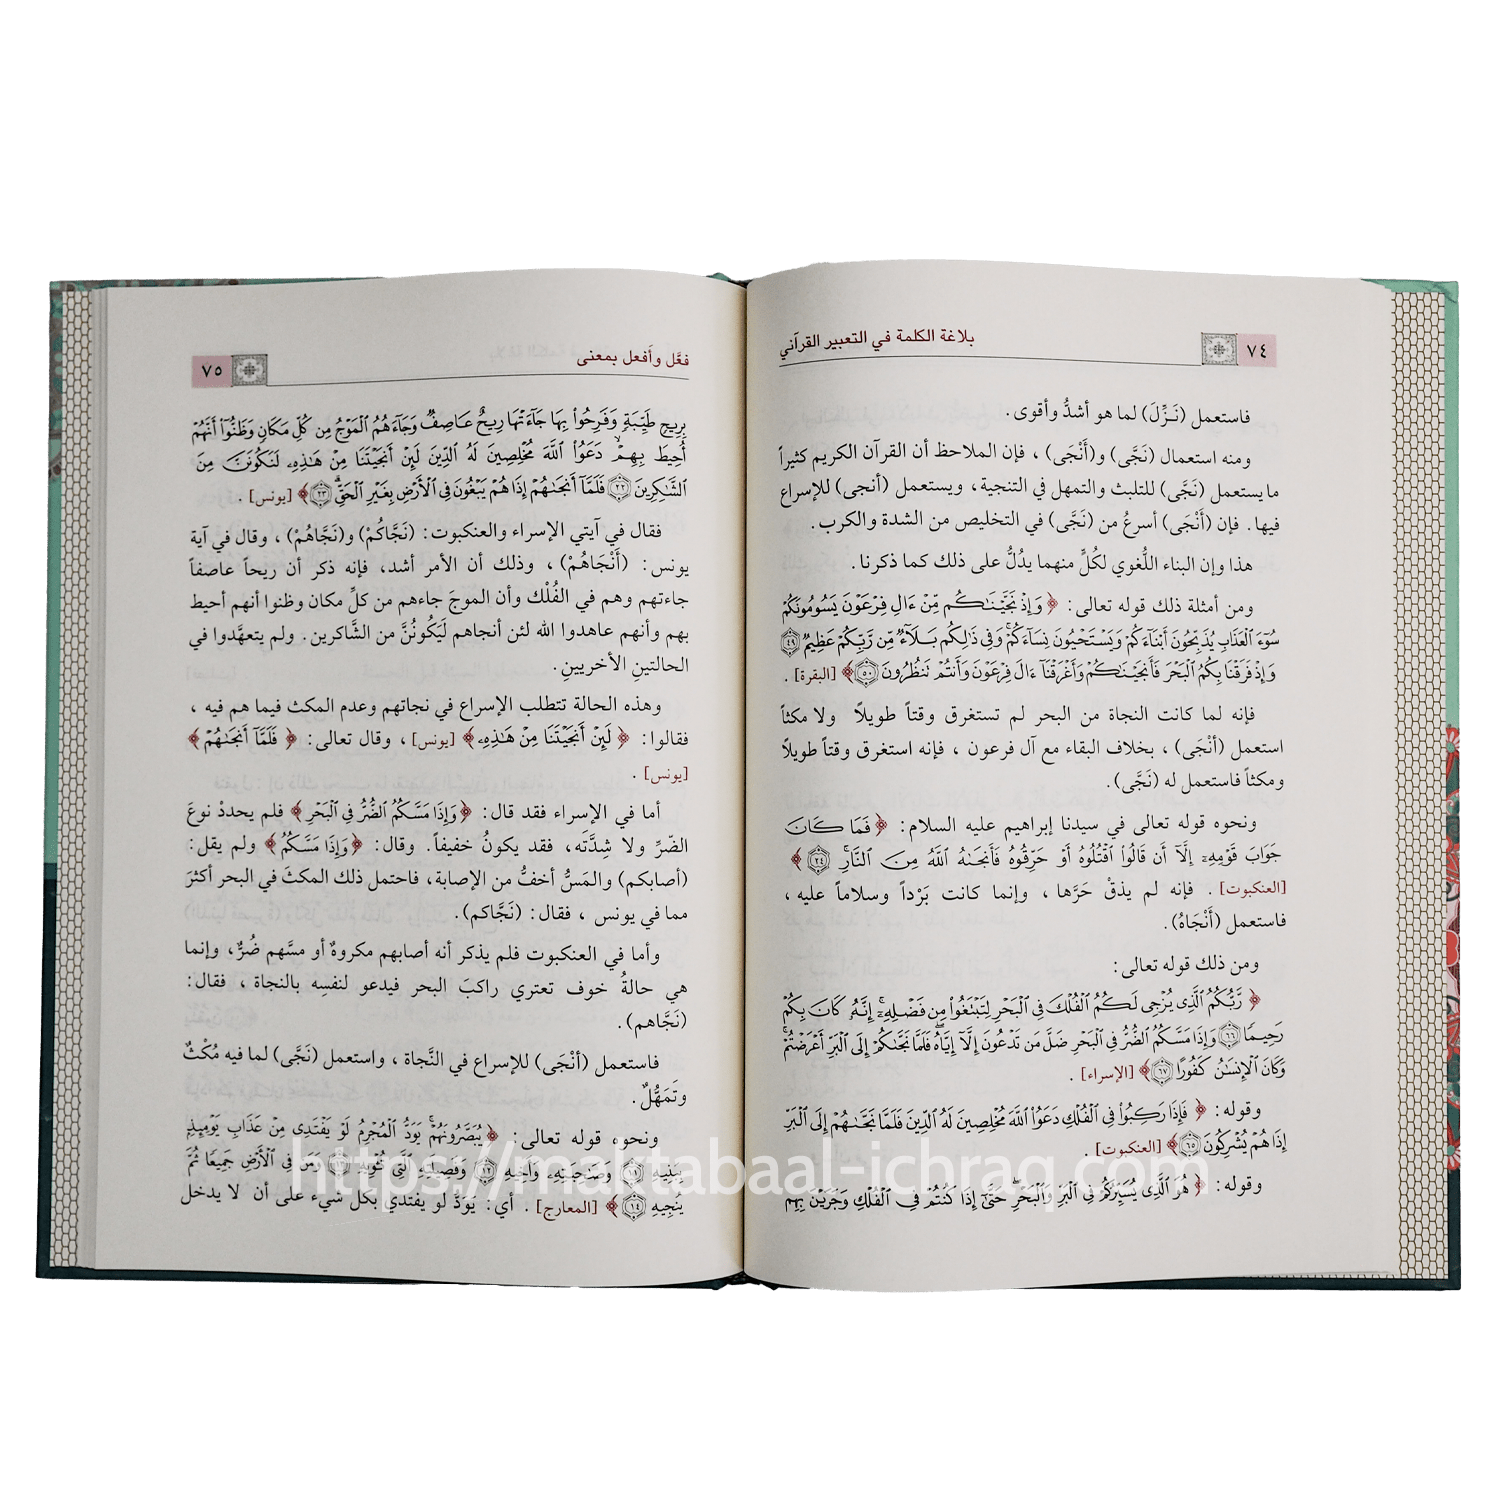 ٧٤ بلاغة الكلمة في التعبير القرآني
فاستعمل (نَزَّلَ) لما هو أشدُّ وأقوى.
ومنه استعمال (نَجَّى) و(أَنْجَى) ، فإن الملاحظ أن القرآن الكريم كثيراً
ما يستعمل (نَجَّى) للتلبث والتمهل في التنجية، ويستعمل (أنجى) للإسراع
فيها. فإن (أَنْجَى) أسرعُ من (نَجَّى) في التخليص من الشدة والكرب.
هذا وإن البناء اللُّغوي لكُلٍّ منهما يدُلُّ على ذلك كما ذكرنا.
ومن أمثلة ذلك قوله تعالى: ﴿ وَإِذْ نَجَّيْنَٰكُم مِّنْ ءَالِ فِرْعَوْنَ يَسُومُونَكُمْ
سُوٓءَ ٱلْعَذَابِ يُذَبِّحُونَ أَبْنَآءَكُمْ وَيَسْتَحْيُونَ نِسَآءَكُمْ ۚ وَفِى ذَٰلِكُم بَلَآءٌ مِّن رَّبِّكُمْ عَظِيمٌ ۝٤٩
وَإِذْ فَرَقْنَا بِكُمُ ٱلْبَحْرَ فَأَنجَيْنَٰكُمْ وَأَغْرَقْنَآ ءَالَ فِرْعَوْنَ وَأَنتُمْ تَنظُرُونَ ۝٥٠ ﴾ [البقرة] .
فإنه لما كانت النجاة من البحر لم تستغرق وقتاً طويلاً ولا مكثاً
استعمل (أنْجَى) ، بخلاف البقاء مع آل فرعون ، فإنه استغرق وقتاً طويلاً
ومكثاً فاستعمل له (نَجَّى).
ونحوه قوله تعالى في سيدنا إبراهيم عليه السلام: ﴿ فَمَا كَانَ
جَوَابَ قَوْمِهِۦٓ إِلَّآ أَن قَالُوا۟ ٱقْتُلُوهُ أَوْ حَرِّقُوهُ فَأَنجَىٰهُ ٱللَّهُ مِنَ ٱلنَّارِ ۚ ۝٢٤ ﴾
[العنكبوت] . فإنه لم يذقْ حَرَّها ، وإنما كانت بَرْداً وسلاماً عليه ،
فاستعمل (أَنْجَاهُ).
ومن ذلك قوله تعالى:
﴿ رَّبُّكُمُ ٱلَّذِى يُزْجِى لَكُمُ ٱلْفُلْكَ فِى ٱلْبَحْرِ لِتَبْتَغُوا۟ مِن فَضْلِهِۦٓ ۚ إِنَّهُۥ كَانَ بِكُمْ
رَحِيمًا ۝٦٦ وَإِذَا مَسَّكُمُ ٱلضُّرُّ فِى ٱلْبَحْرِ ضَلَّ مَن تَدْعُونَ إِلَّآ إِيَّاهُ ۖ فَلَمَّا نَجَّىٰكُمْ إِلَى ٱلْبَرِّ أَعْرَضْتُمْ ۚ
وَكَانَ ٱلْإِنسَٰنُ كَفُورًا ۝٦٧ ﴾ [الإسراء] .
وقوله: ﴿ فَإِذَا رَكِبُوا۟ فِى ٱلْفُلْكِ دَعَوُا۟ ٱللَّهَ مُخْلِصِينَ لَهُ ٱلدِّينَ فَلَمَّا نَجَّىٰهُمْ إِلَى ٱلْبَرِّ
إِذَا هُمْ يُشْرِكُونَ ۝٦٥ ﴾ [العنكبوت] .
وقوله: ﴿ هُوَ ٱلَّذِى يُسَيِّرُكُمْ فِى ٱلْبَرِّ وَٱلْبَحْرِ ۖ حَتَّىٰٓ إِذَا كُنتُمْ فِى ٱلْفُلْكِ وَجَرَيْنَ بِهِم
فعَّل وأَفعل بمعنى ٧٥
بِرِيحٍ طَيِّبَةٍ وَفَرِحُوا۟ بِهَا جَآءَتْهَا رِيحٌ عَاصِفٌ وَجَآءَهُمُ ٱلْمَوْجُ مِن كُلِّ مَكَانٍ وَظَنُّوٓا۟ أَنَّهُمْ
أُحِيطَ بِهِمْ ۙ دَعَوُا۟ ٱللَّهَ مُخْلِصِينَ لَهُ ٱلدِّينَ لَئِنْ أَنجَيْتَنَا مِنْ هَٰذِهِۦ لَنَكُونَنَّ مِنَ
ٱلشَّٰكِرِينَ ۝٢٢ فَلَمَّآ أَنجَىٰهُمْ إِذَا هُمْ يَبْغُونَ فِى ٱلْأَرْضِ بِغَيْرِ ٱلْحَقِّ ۗ ۝٢٣ ﴾ [يونس] .
فقال في آيتي الإسراء والعنكبوت: (نَجَّاكُمْ) و(نَجَّاهُمْ) ، وقال في آية
يونس: (أَنْجَاهُمْ) ، وذلك أن الأمر أشد، فإنه ذكر أن ريحاً عاصفاً
جاءتهم وهم في الفُلْك وأن الموجَ جاءهم من كلِّ مكان وظنوا أنهم أحيط
بهم وأنهم عاهدوا الله لئن أنجاهم لَيَكُونُنَّ من الشَّاكرين. ولم يتعهَّدوا في
الحالتينِ الأخريينِ.
وهذه الحالة تتطلب الإسراع في نجاتهم وعدم المكث فيما هم فيه ،
فقالوا: ﴿ لَئِنْ أَنجَيْتَنَا مِنْ هَٰذِهِۦ ﴾ [يونس] ، وقال تعالى: ﴿ فَلَمَّآ أَنجَىٰهُمْ ﴾
[يونس] .
أما في الإسراء فقد قال: ﴿ وَإِذَا مَسَّكُمُ ٱلضُّرُّ فِى ٱلْبَحْرِ ﴾ فلم يحددْ نوعَ
الضّرِّ ولا شِدَّتَه، فقد يكونُ خفيفاً. وقال: ﴿ وَإِذَا مَسَّكُمُ ﴾ ولم يقل:
(أصابكم) والمَسُّ أخفُّ من الإصابة، فاحتمل ذلك المكثَ في البحر أكثرَ
مما في يونس ، فقال: (نَجَّاكم).
وأما في العنكبوت فلم يذكر أنه أصابهم مكروهٌ أو مسَّهم ضُرٌّ، وإنما
هي حالةُ خوف تعتري راكبَ البحر فيدعو لنفسِه بالنجاة ، فقال:
(نَجَّاهم).
فاستعمل (أنْجَى) للإسراع في النَّجاة ، واستعمل (نَجَّى) لما فيه مُكْثٌ
وتَمَهُّلٌ.
ونحوه قوله تعالى: ﴿ يُبَصَّرُونَهُمْ ۚ يَوَدُّ ٱلْمُجْرِمُ لَوْ يَفْتَدِى مِنْ عَذَابِ يَوْمِئِذٍۭ
بِبَنِيهِ ۝١١ وَصَٰحِبَتِهِۦ وَأَخِيهِ ۝١٢ وَفَصِيلَتِهِ ٱلَّتِى تُـْٔوِيهِ ۝١٣ وَمَن فِى ٱلْأَرْضِ جَمِيعًا ثُمَّ
يُنجِيهِ ۝١٤ ﴾ [المعارج] . أي: يَوَدُّ لو يفتدي بكل شيء على أن لا يدخل
https://maktabaal-icbraq.com